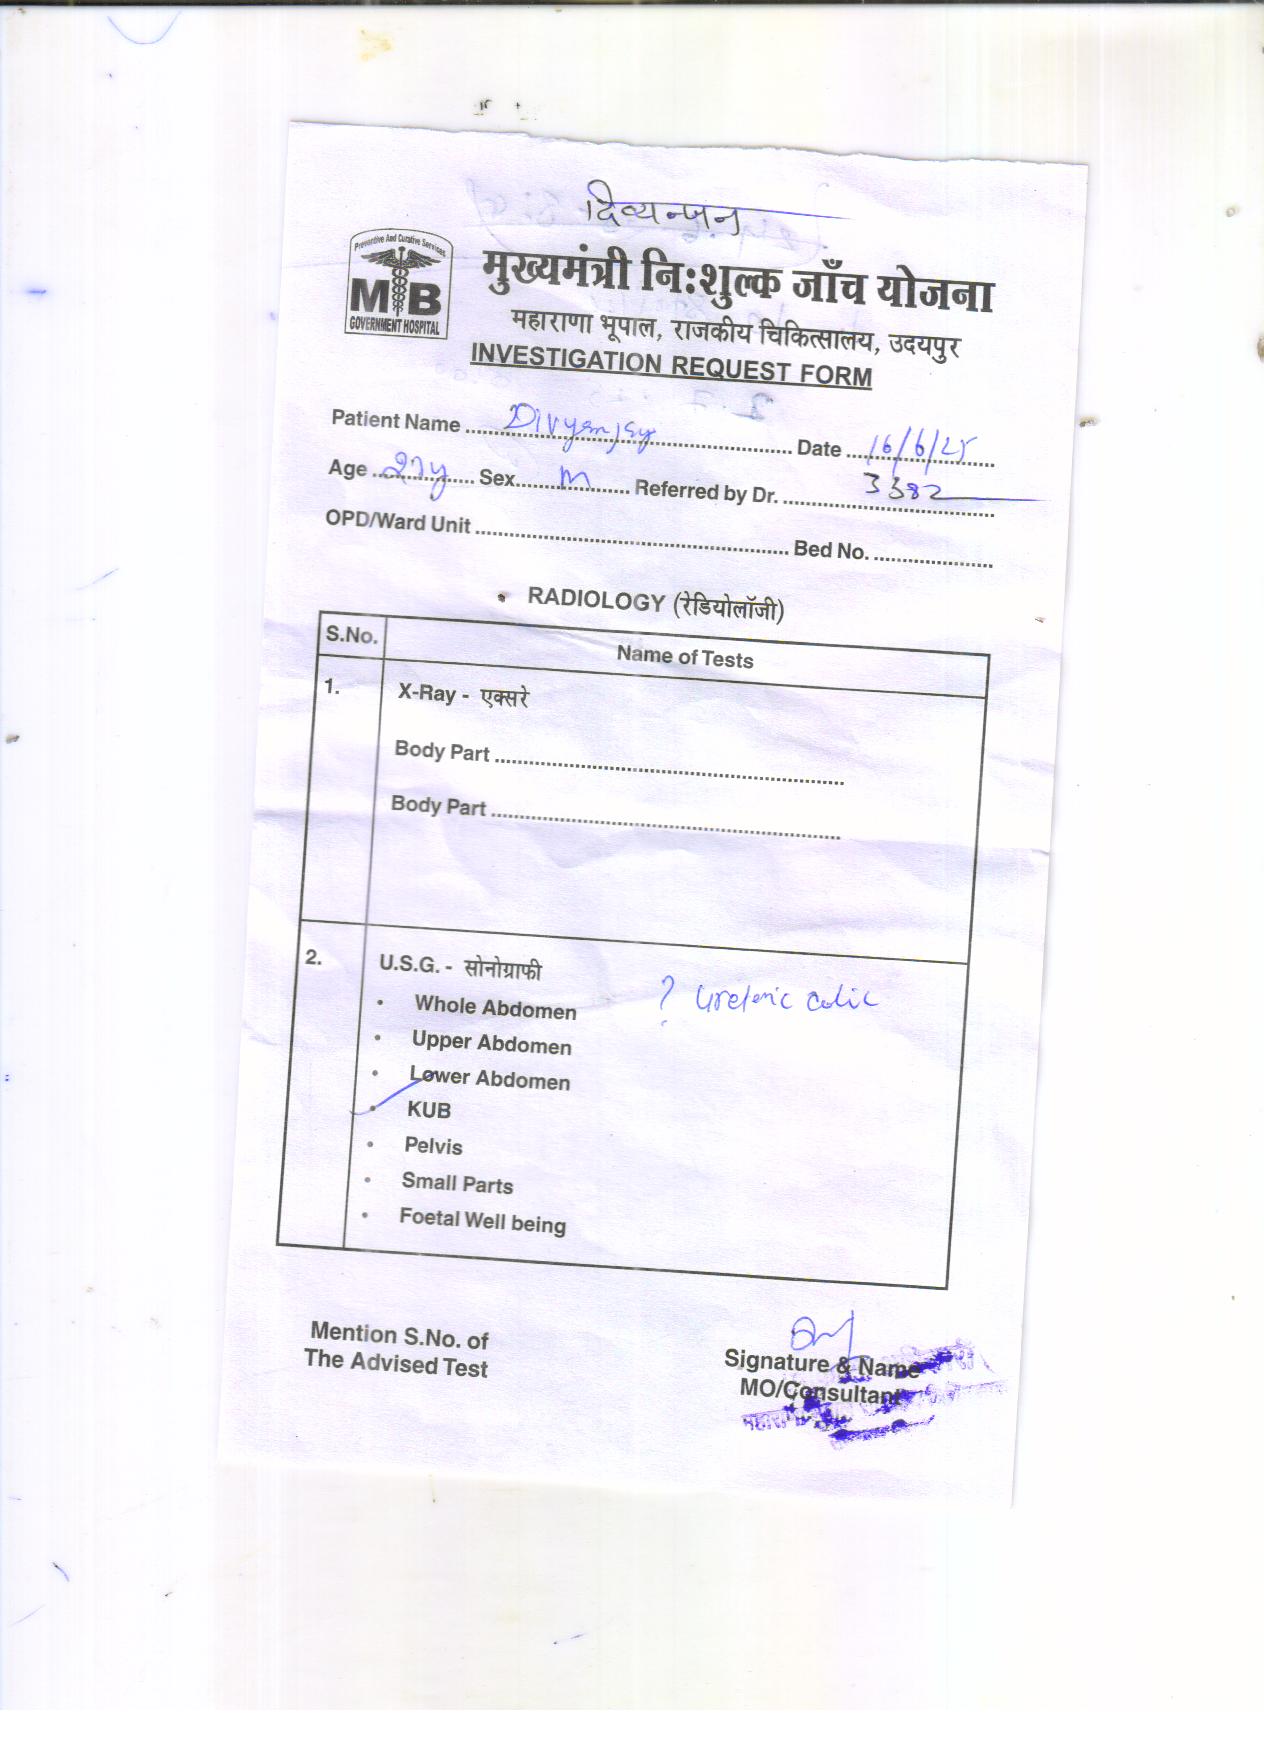 दिव्यान्जन
Preventive And Curative Services
MB
GOVERNMENT HOSPITAL
मुख्यमंत्री नि:शुल्क जाँच योजना
महाराणा भूपाल, राजकीय चिकित्सालय, उदयपुर
INVESTIGATION REQUEST FORM
Patient Name ........ Date 16/6/25
Age 27y Sex M Referred by Dr. 3382
OPD/Ward Unit ........ Bed No. ........
• RADIOLOGY (रेडियोलॉजी)
S.No. Name of Tests
1. X-Ray - एक्सरे
Body Part ........
Body Part ........
2. U.S.G. - सोनोग्राफी
? Ureteric colic
• Whole Abdomen
• Upper Abdomen
• Lower Abdomen
• KUB
• Pelvis
• Small Parts
• Foetal Well being
Mention S.No. of
The Advised Test
Signature & Name
MO/Consultant